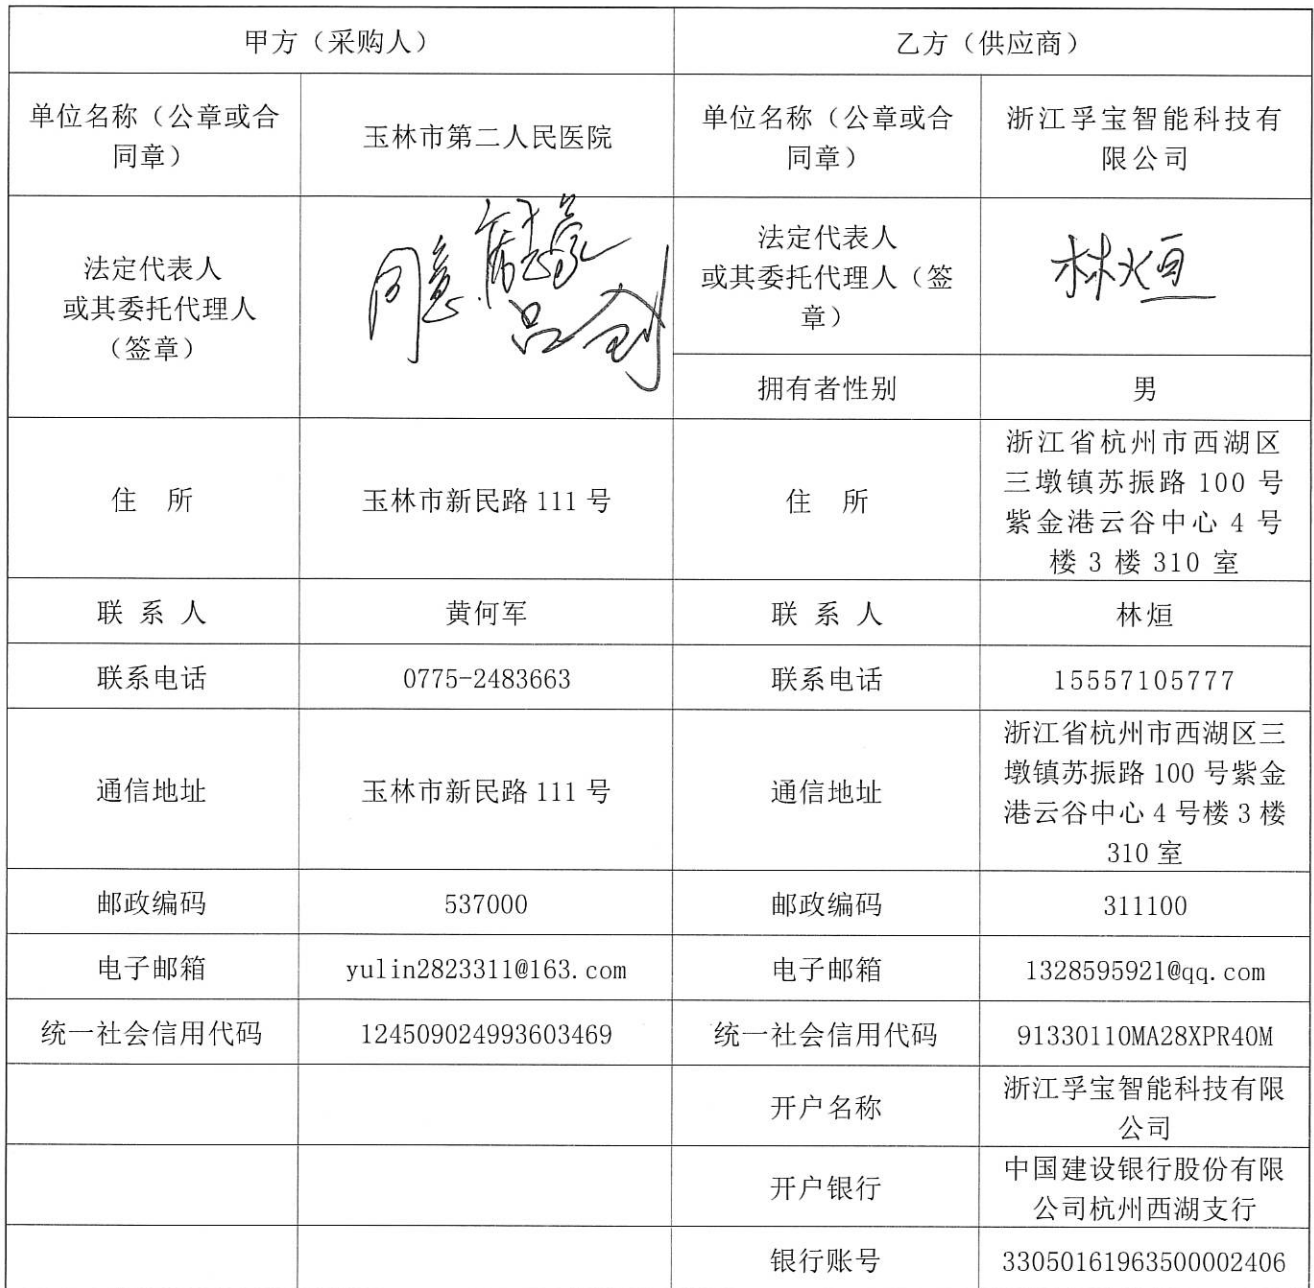 甲方（采购人）
乙方（供应商）
单位名称（公章或合
同章）
玉林市第二人民医院
单位名称（公章或合
同章）
浙江孚宝智能科技有
限公司
法定代表人
或其委托代理人
（签章）
同意
法定代表人
或其委托代理人（签
章）
林烜
拥有者性别
男
住 所
玉林市新民路 111 号
住 所
浙江省杭州市西湖区
三墩镇苏振路 100 号
紫金港云谷中心 4 号
楼 3 楼 310 室
联 系 人
黄何军
联 系 人
林烜
联系电话
0775-2483663
联系电话
15557105777
通信地址
玉林市新民路 111 号
通信地址
浙江省杭州市西湖区三
墩镇苏振路 100 号紫金
港云谷中心 4 号楼 3 楼
310 室
邮政编码
537000
邮政编码
311100
电子邮箱
yulin2823311@163.com
电子邮箱
1328595921@qq.com
统一社会信用代码
124509024993603469
统一社会信用代码
91330110MA28XPR40M
开户名称
浙江孚宝智能科技有限
公司
开户银行
中国建设银行股份有限
公司杭州西湖支行
银行账号
33050161963500002406